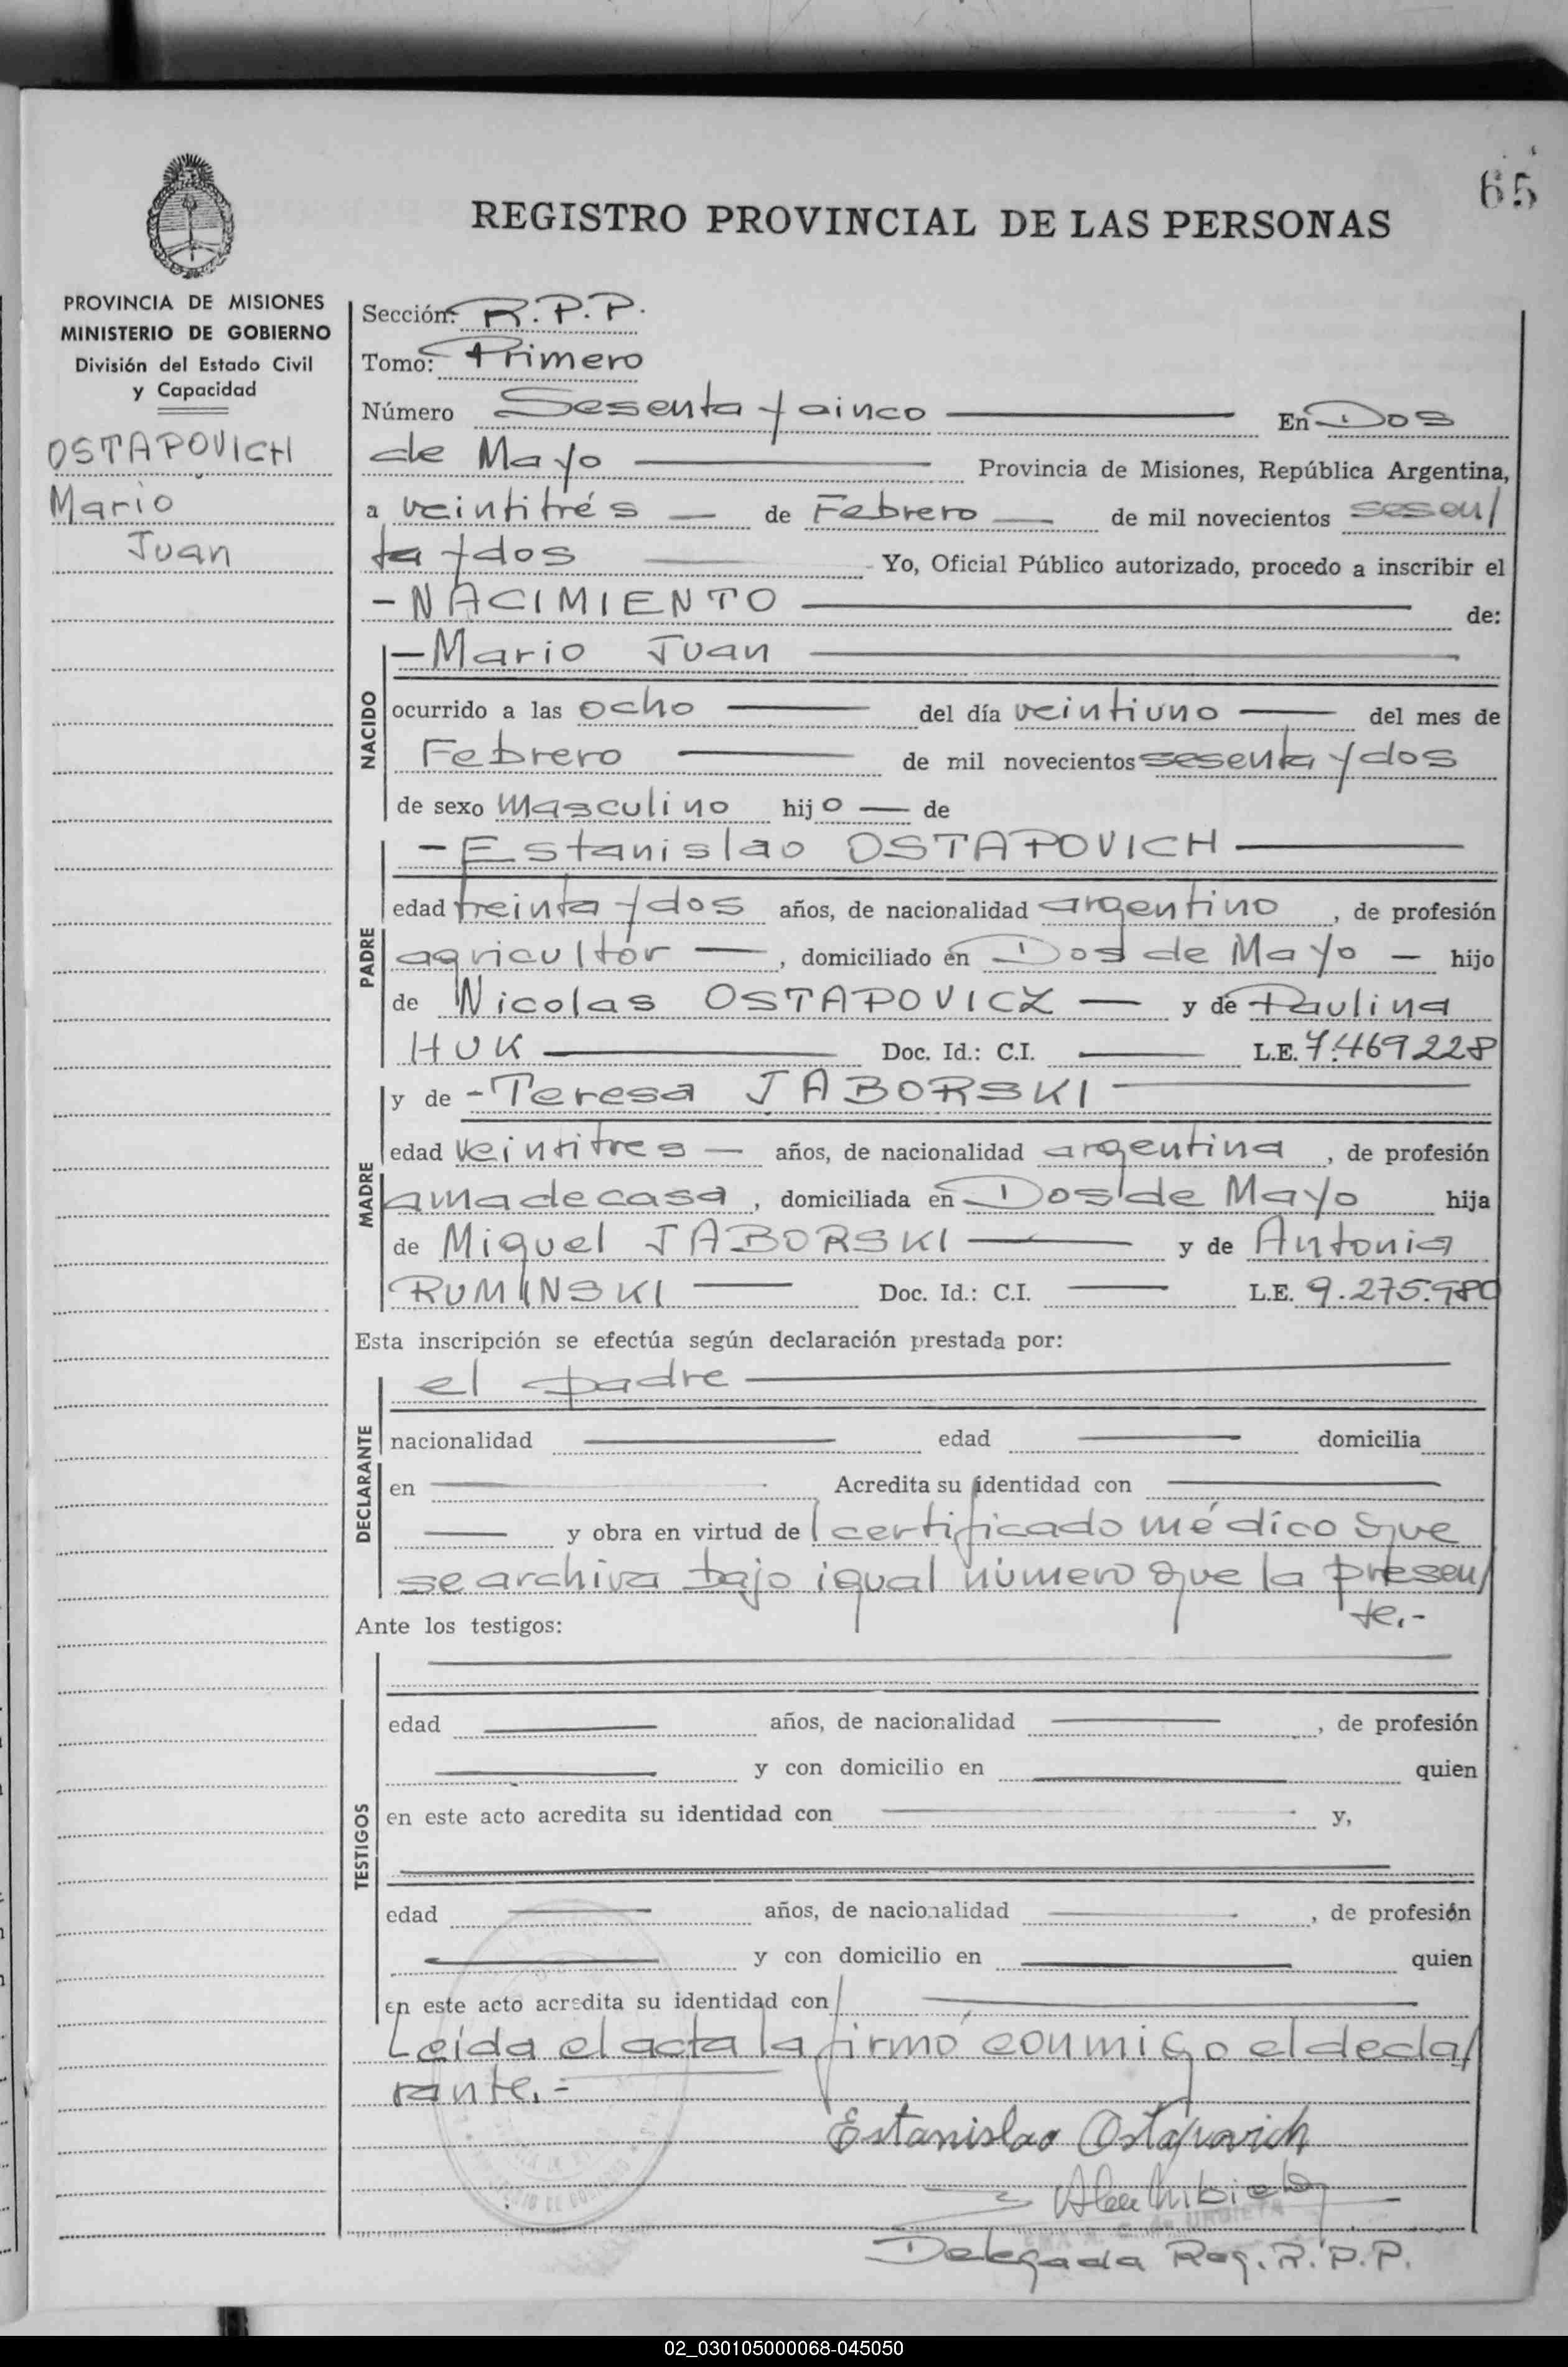 65
REGISTRO PROVINCIAL DE LAS PERSONAS
PROVINCIA DE MISIONES
MINISTERIO DE GOBIERNO
División del Estado Civil
y Capacidad
OSTAPOVICH
Mario
Juan
Sección: R.P.P.
Tomo: Primero
Número Sesenta y cinco En Dos
de Mayo Provincia de Misiones, República Argentina,
a veintitrés de Febrero de mil novecientos sesen/
ta y dos Yo, Oficial Público autorizado, procedo a inscribir el
- NACIMIENTO de:
NACIDO
- Mario Juan
ocurrido a las ocho del día veintiuno del mes de
Febrero de mil novecientos sesenta y dos
de sexo masculino hijo de
PADRE
- Estanislao OSTAPOVICH
edad treinta y dos años, de nacionalidad argentino, de profesión
agricultor, domiciliado en Dos de Mayo - hijo
de Nicolas OSTAPOVICZ y de Paulina
HUK Doc. Id.: C.I. L.E. 7.469228
MADRE
y de - Teresa JABORSKI
edad veintitres años, de nacionalidad argentina, de profesión
ama de casa, domiciliada en Dos de Mayo hija
de Miguel JABORSKI y de Antonia
RUMINSKI Doc. Id.: C.I. L.E. 9.275.980
Esta inscripción se efectúa según declaración prestada por:
DECLARANTE
el padre
nacionalidad edad domicilia
en Acredita su identidad con
y obra en virtud de l certificado médico que
se archiva bajo igual número que la presen/
te.-
Ante los testigos:
TESTIGOS
edad años, de nacionalidad , de profesión
y con domicilio en quien
en este acto acredita su identidad con y,
edad años, de nacionalidad , de profesión
y con domicilio en quien
en este acto acredita su identidad con
Leída el acta la firmó conmigo el decla/
rante.-
Estanislao Ostapovich
Delegada Reg. R.P.P.
02_030105000068-045050